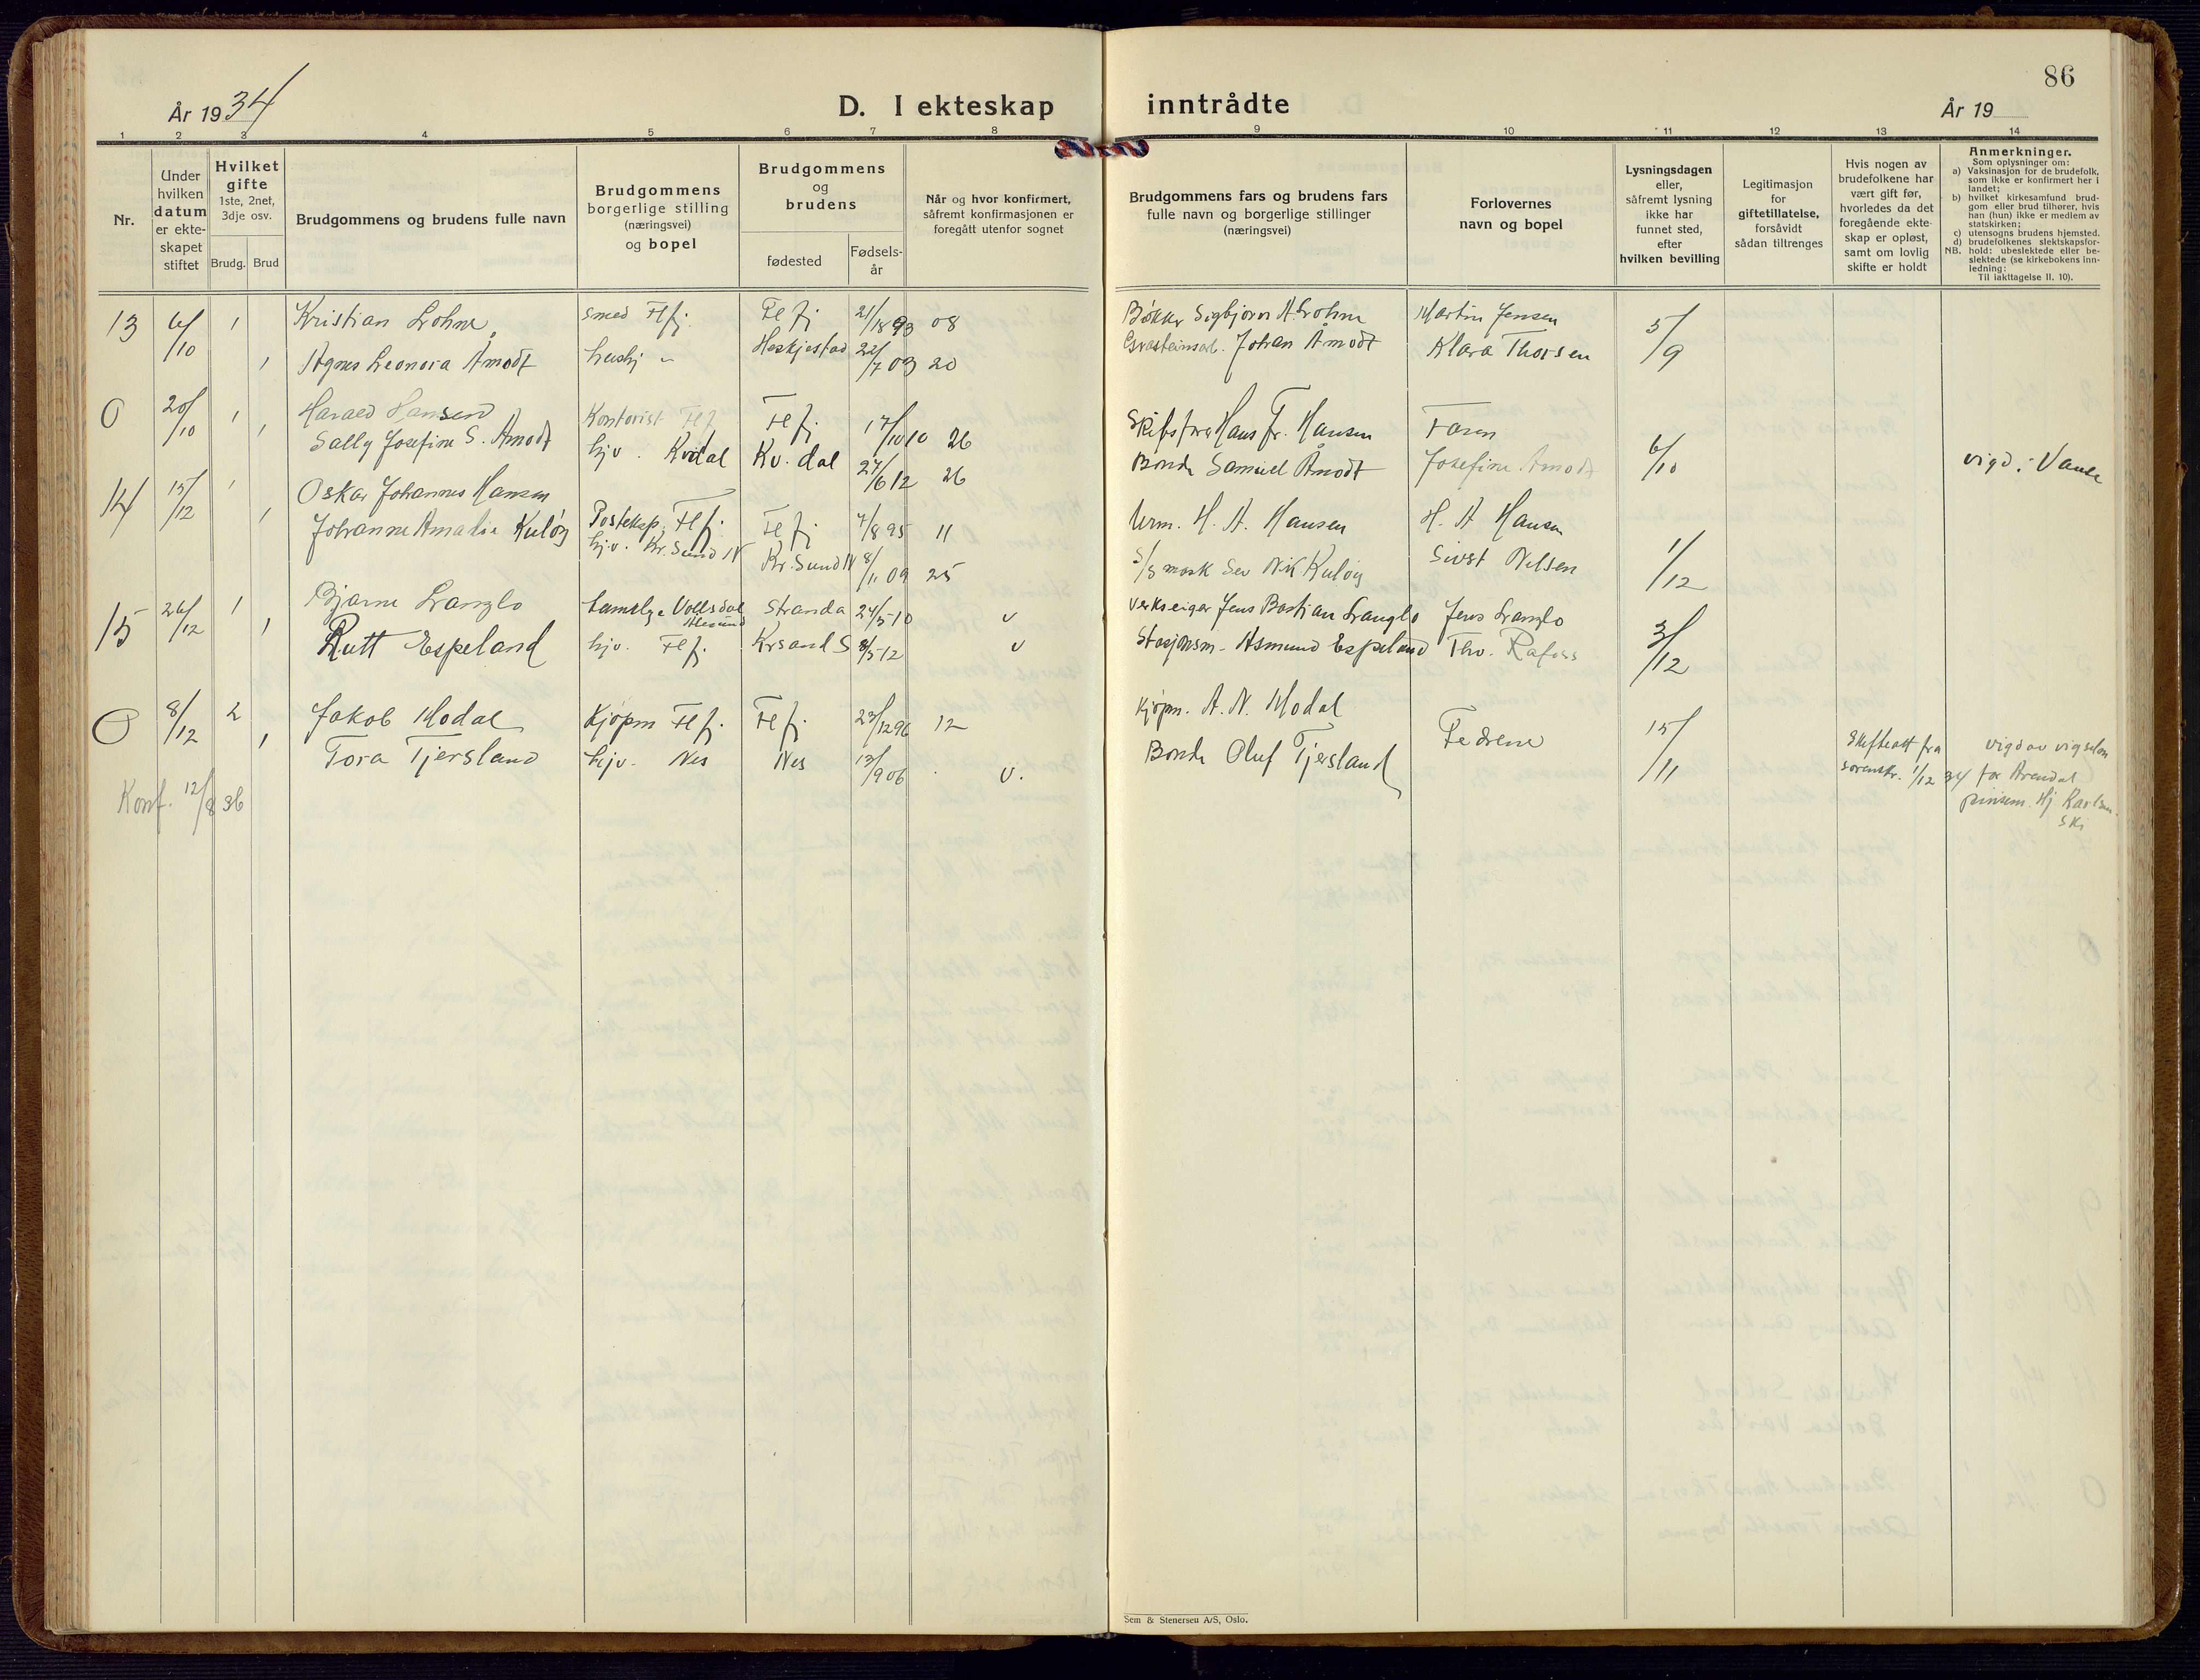 86
År 1934
D. I ekteskap inntrådte
År 19
1 2 3 4 5 6 7 8 9 10 11 12 13 14
Nr.
Under hvilken datum er ekteskapet stiftet
Hvilket gifte 1ste, 2net, 3dje osv.
Brudg. Brud
Brudgommens og brudens fulle navn
Brudgommens borgerlige stilling (næringsvei) og bopel
Brudgommens og brudens
fødested
Fødselsår
Når og hvor konfirmert, såfremt konfirmasjonen er foregått utenfor sognet
Brudgommens fars og brudens fars fulle navn og borgerlige stillinger (næringsvei)
Forlovernes navn og bopel
Lysningsdagen eller, såfremt lysning ikke har funnet sted, efter hvilken bevilling
Legitimasjon for giftetillatelse, forsåvidt sådan tiltrenges
Hvis nogen av brudefolkene har vært gift før, hvorledes da det foregående ekteskap er opløst, samt om lovlig skifte er holdt
Anmerkninger.
Som oplysninger om:
a) Vaksinasjon for de brudefolk, som ikke er konfirmert her i landet;
b) hvilket kirkesamfund brudgom eller brud tilhører, hvis han (hun) ikke er medlem av statskirken;
c) utensogns brudens hjemsted.
d) brudefolkenes slektskapsforhold: ubeslektede eller beslektede (se kirkebokens innledning:
NB.
Til iakttagelse II. 10).
13 6/10 1 Kristian Lohne smed Flfj. Flfj 21/1893 08 Bøkker Sigbjørn A Lohne Martin Jensen 5/9
1 Agnes Leonora Åmodt hushj " Heskjestad 22/7 03 20 Johan Åmodt Klara Thorsen
0 20/10 1 Harald Hansen Kontorist Flfj Flfj. 17/10 10 26 Skibsfører Hans Fr. Hansen Faren 6/10
1 Sally Josefine S. Åmodt hjv. Kvidal Kv. dal 27/6 12 26 Bonde Samuel Åmodt Josefine Åmodt vigd i Vanse
14 15/12 1 Oskar Johannes Hansen Posteksp. Flfj. Flfj. 7/8 95 11 Urm. H. A. Hansen H. A Hansen 1/12
1 Johanne Amalia Kuløy hjv. Kr. Sund N Kr. Sund N 8/11 09 25 Nik Kuløy Sivst Nilsen
15 26/12 1 Bjarne Langlo Ålesund Stranda 24/5 10 v Verkseiger Jens Bastian Langlo Jens Langlo 3/12
1 Rutt Espeland hjv. Flfj. Krsand S 8/5 12 v Stasjonsm. Asmund Espeland Thv. Rafoss
0 8/12 2 Jakob Modal Kjøpm Flfj. Flfj. 23/12 96 12 Kjøpm. A. N. Modal Fedrene 15/11 Skifteatt fra sorenskr. 1/12 34
1 Tora Tjersland hjv. Nes Nes 13/9 06 v. Bonde Oluf Tjersland vigd av for Arendal
Konf. 12/8 36
Sem & Stenersen A/S, Oslo.